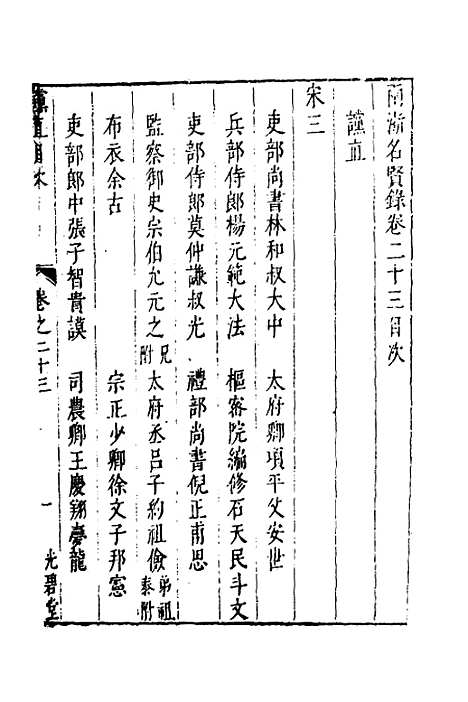 兩浙名賢錄卷二十三目次
讜直
宋三
吏部尚書林和叔大中　太府卿項平父安世
兵部侍郎楊元範大法　樞密院編修石天民斗文
吏部侍郎莫仲謙叔光　禮部尚書倪正甫思
監察御史宗伯允元之兄附　太府丞呂子約祖儉弟祖泰附
布衣余古　宗正少卿徐文子邦憲
吏部郎中張子智貴謨　司農卿王慶翔夢龍
卷之二十三　一　光碧堂